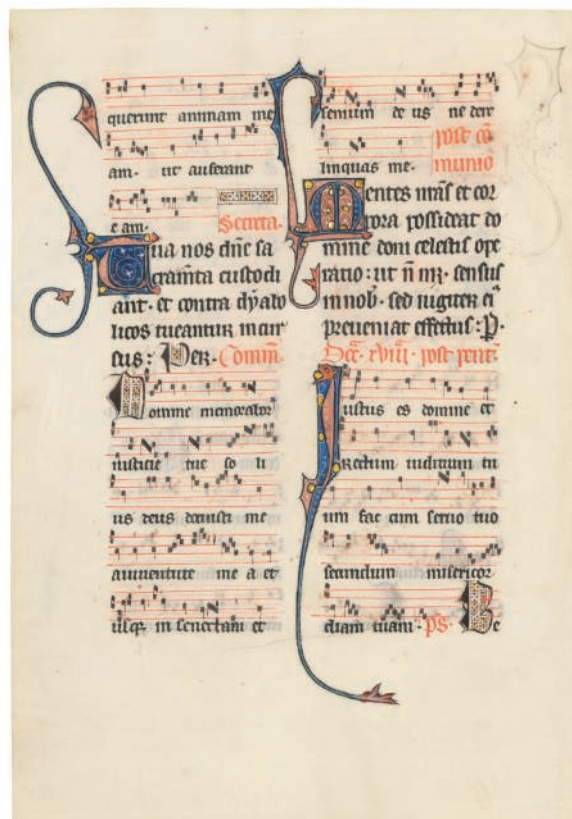 querunt animam me
am. ut auferant
e am.
Secreta.
Tua nos dñe sa
cramta custodi
ant. et contra dyabo
licos tueantur incur
sus: Per. Comm̄.
Domine memorabor
iusticie tue so li
us deus docuisti me
a iuventute me a et
usq; in senectam et
senium de us ne dere
linquas me.
post cō
munio
Mentes nrās et cor
pora possideat do
mine doni celestis ope
ratio: ut ñ nr̄. sensus
in nob̄. sed iugiter ei᷒
preveniat effectus: P.
Dcā. xviii. post pent̄.
Iustus es domine et
rectum iudicium tu
um fac cum servo tuo
secundum misericor
diam tuam. ps. Be